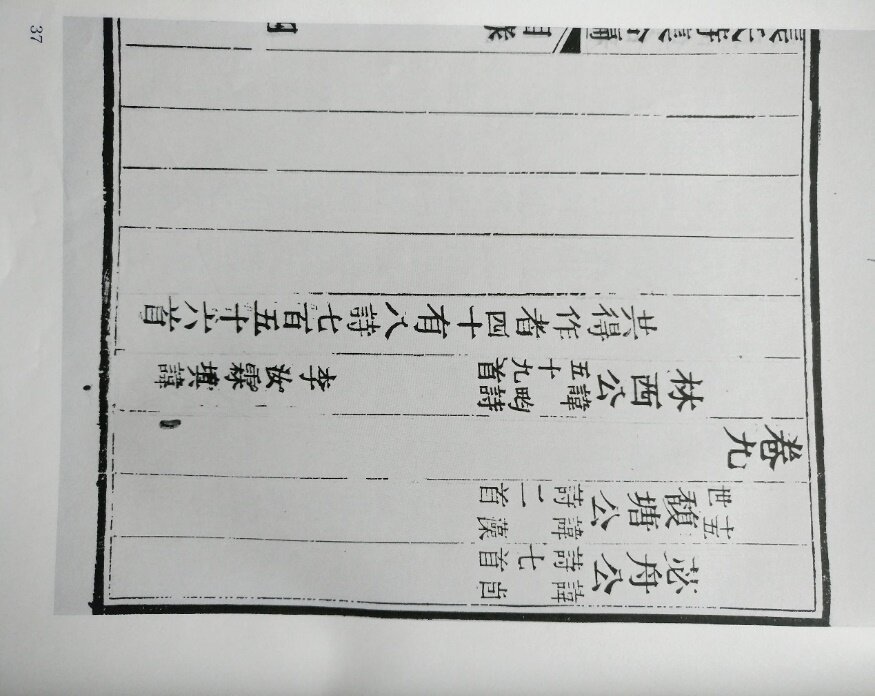 苾舟公 諱尚 詩七首
十五世 馥塘公 諱漢 詩二首
卷九
林西公 諱畇詩五十九首 李汝霖填諱
共得作者四十有八詩七百五十六首
37